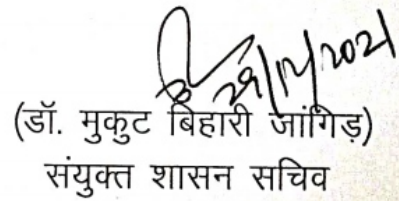 29/12/2021
(डॉ. मुकुट बिहारी जांगिड़)
संयुक्त शासन सचिव